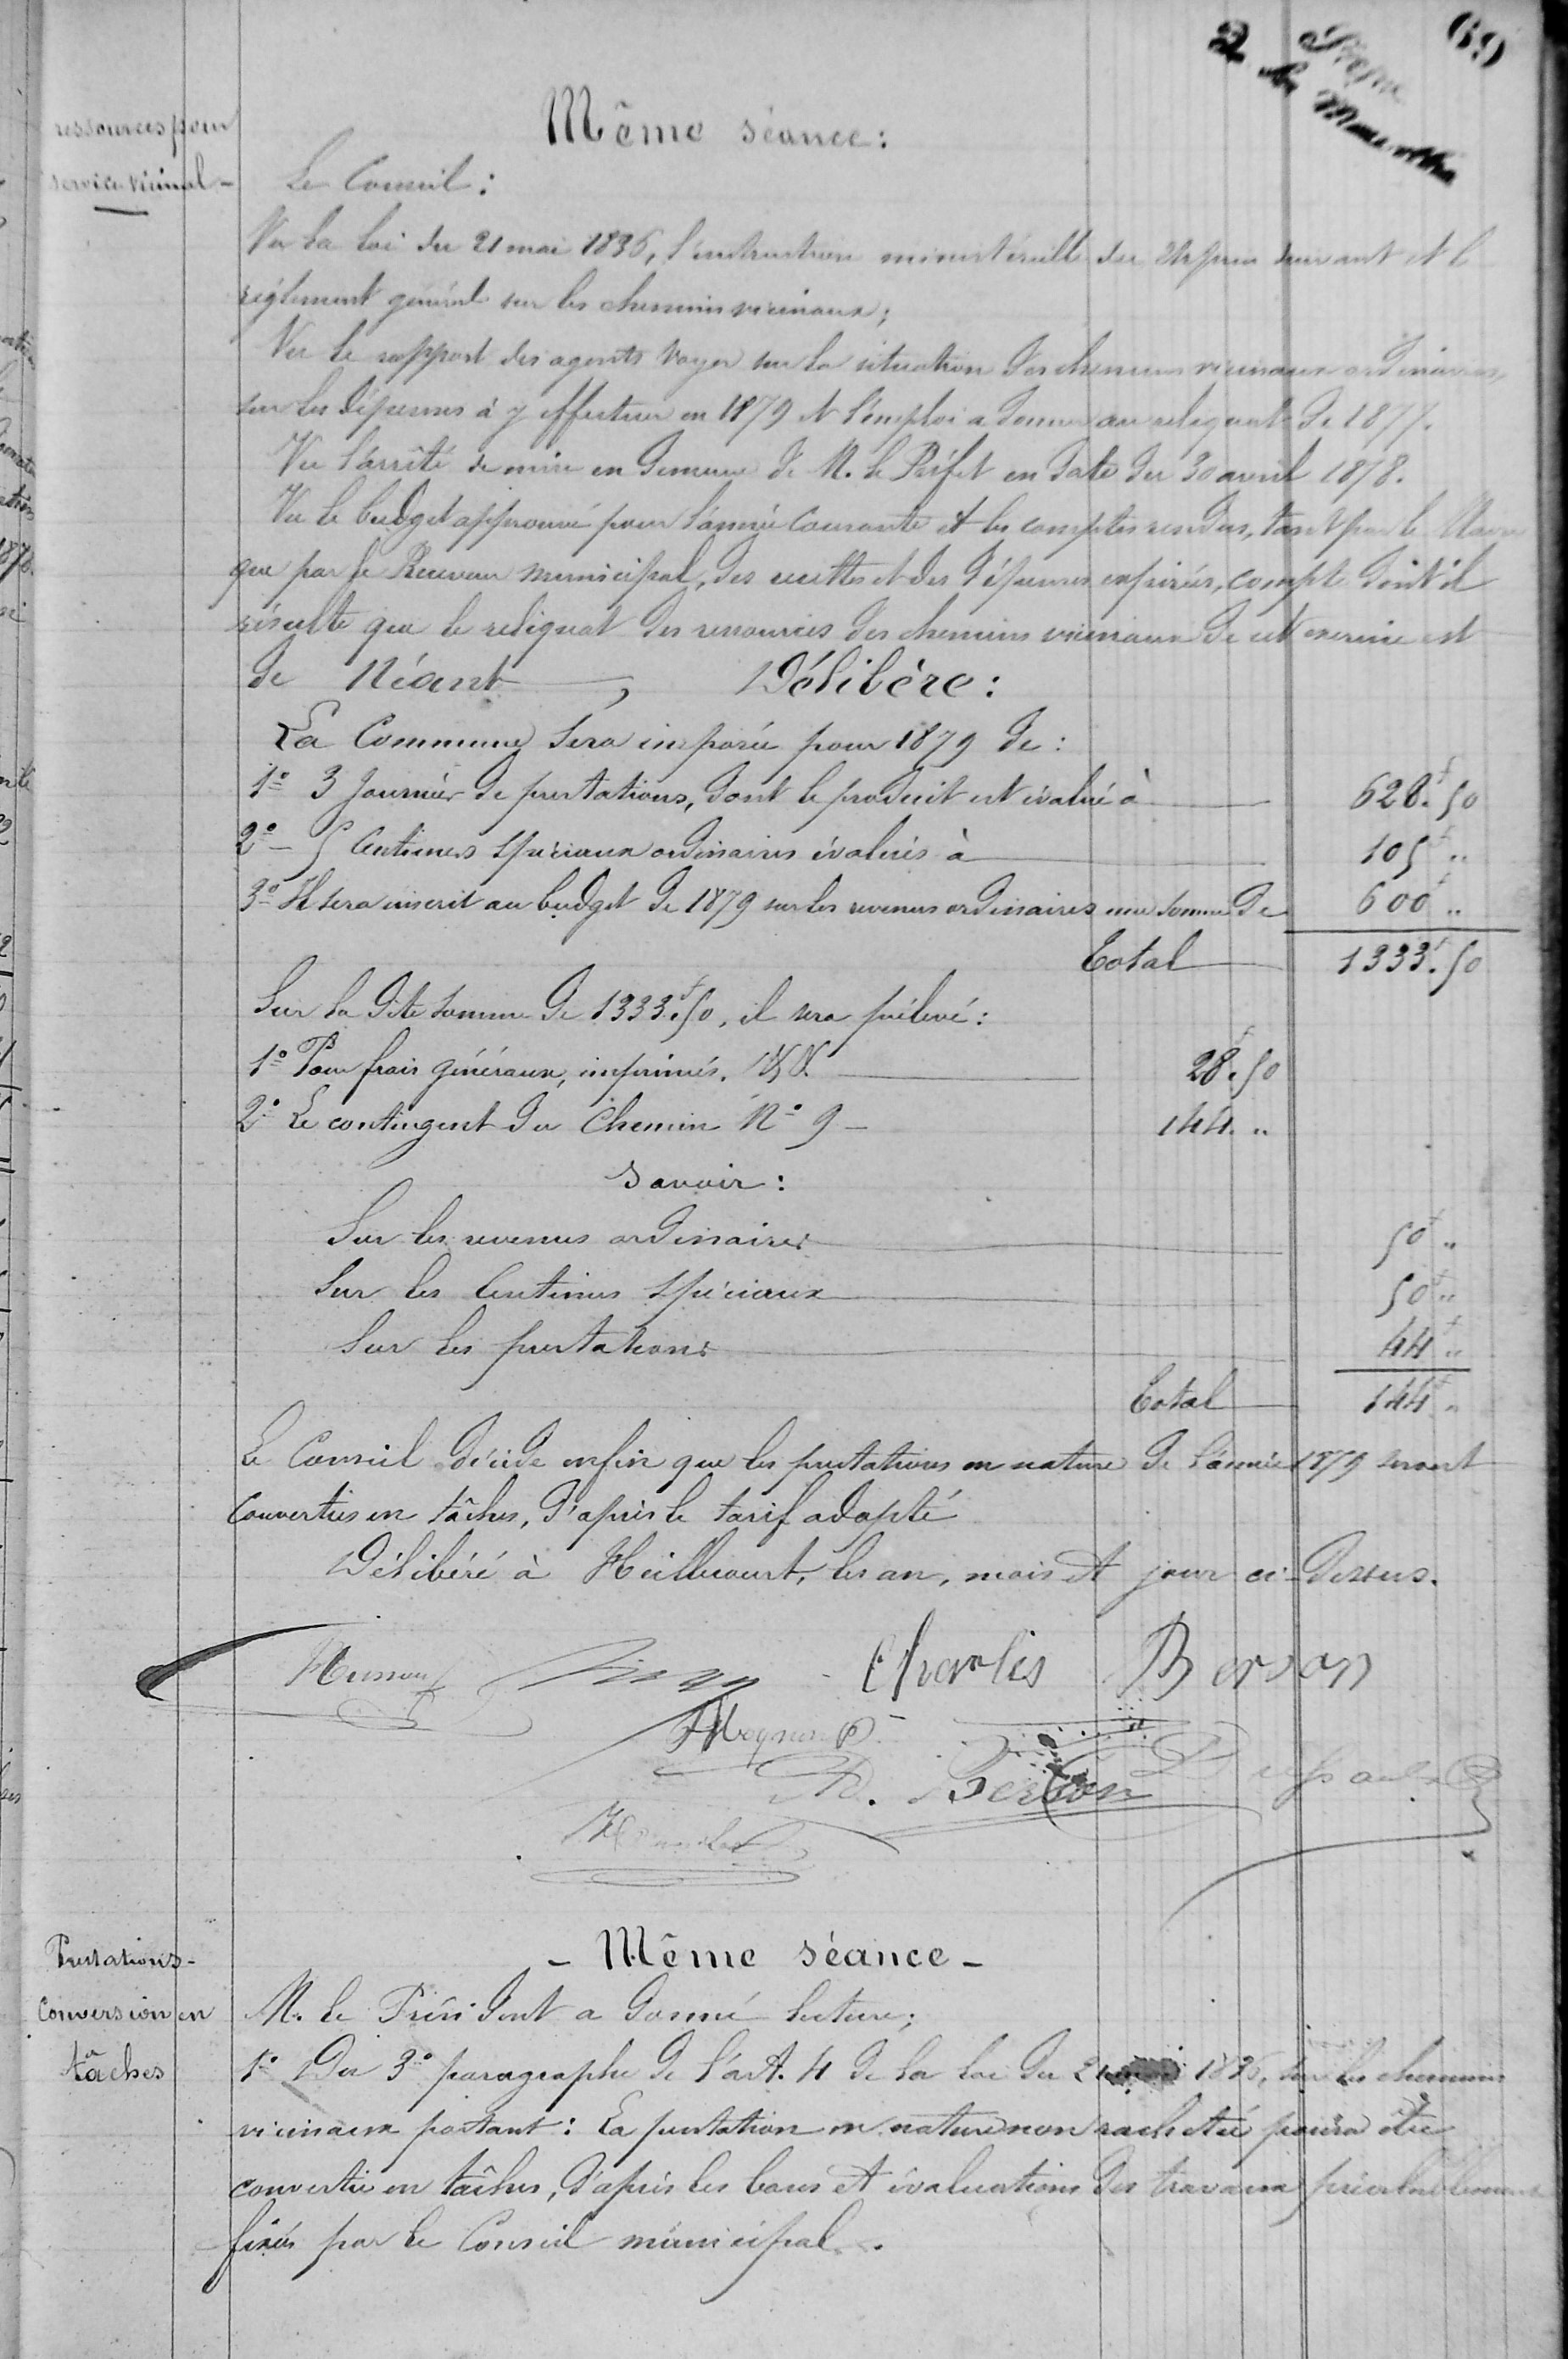 69
2
ressources pour
service vicinal -
Même séance :
Le Conseil :
Vu la loi du 21 mai 1836, l'instruction ministérielle du 24 juin suivant et le
réglement général sur les chemins vicinaux ;
Vu le rapport des agents voyer sur la situation des chemins vicinaux ordinaires,
sur les dépenses à y effectuer en 1879 et l'emploi a donner au reliquat de 1877.
Vu l'arrêté de mise en demeure de M. le Préfet en date du 30 avril 1878.
Vu le budget approuvé pour l'année courante et les comptes rendus, tant par le Maire
que par le Receveur municipal, des recettes et des dépenses expirées, compte dont il
résulte que le reliquat des ressources des chemins vicinaux de cet exercice est
de Néant , Délibère :
La Commune sera imposée pour 1879 de :
1° 3 Journées de prestations, dont le produit est évalué à 628f.50
2° - 5 Centimes spéciaux ordinaires évalués à 105f "
3° Il sera inscrit au budget de 1879 sur les revenus ordinaires une somme de 600f "
Total 1333f.50
Sur la dite somme de 1333f.50, il sera prélevé :
1° Pour frais généraux, imprimés, &&. 28f.50
2° Le contingent du Chemin N° 9 - 144. "
Savoir :
Sur les revenus ordinaires 50f "
Sur les Centimes spéciaux 50f "
Sur les prestations 44f "
Total 144f "
Le Conseil décide enfin que les prestations en nature de l'année 1879 seront
converties en tâches, d'après le tarif adopté
Délibéré à Heillecourt, les an, mois et jour ci-dessus.
Husson Charles Berson
D. Berson
Prestations -
Conversion en
tâches
- Même séance -
M. le Président a donné lecture ;
1° Du 3° paragraphe de l'art. 4 de la loi du 21 mai 1836, sur les chemins
vicinaux portant : La prestation en nature non rachetée poura être
convertie en tâches, d'après les bases et évaluations des travaux préalablement
fixés par le Conseil municipal.